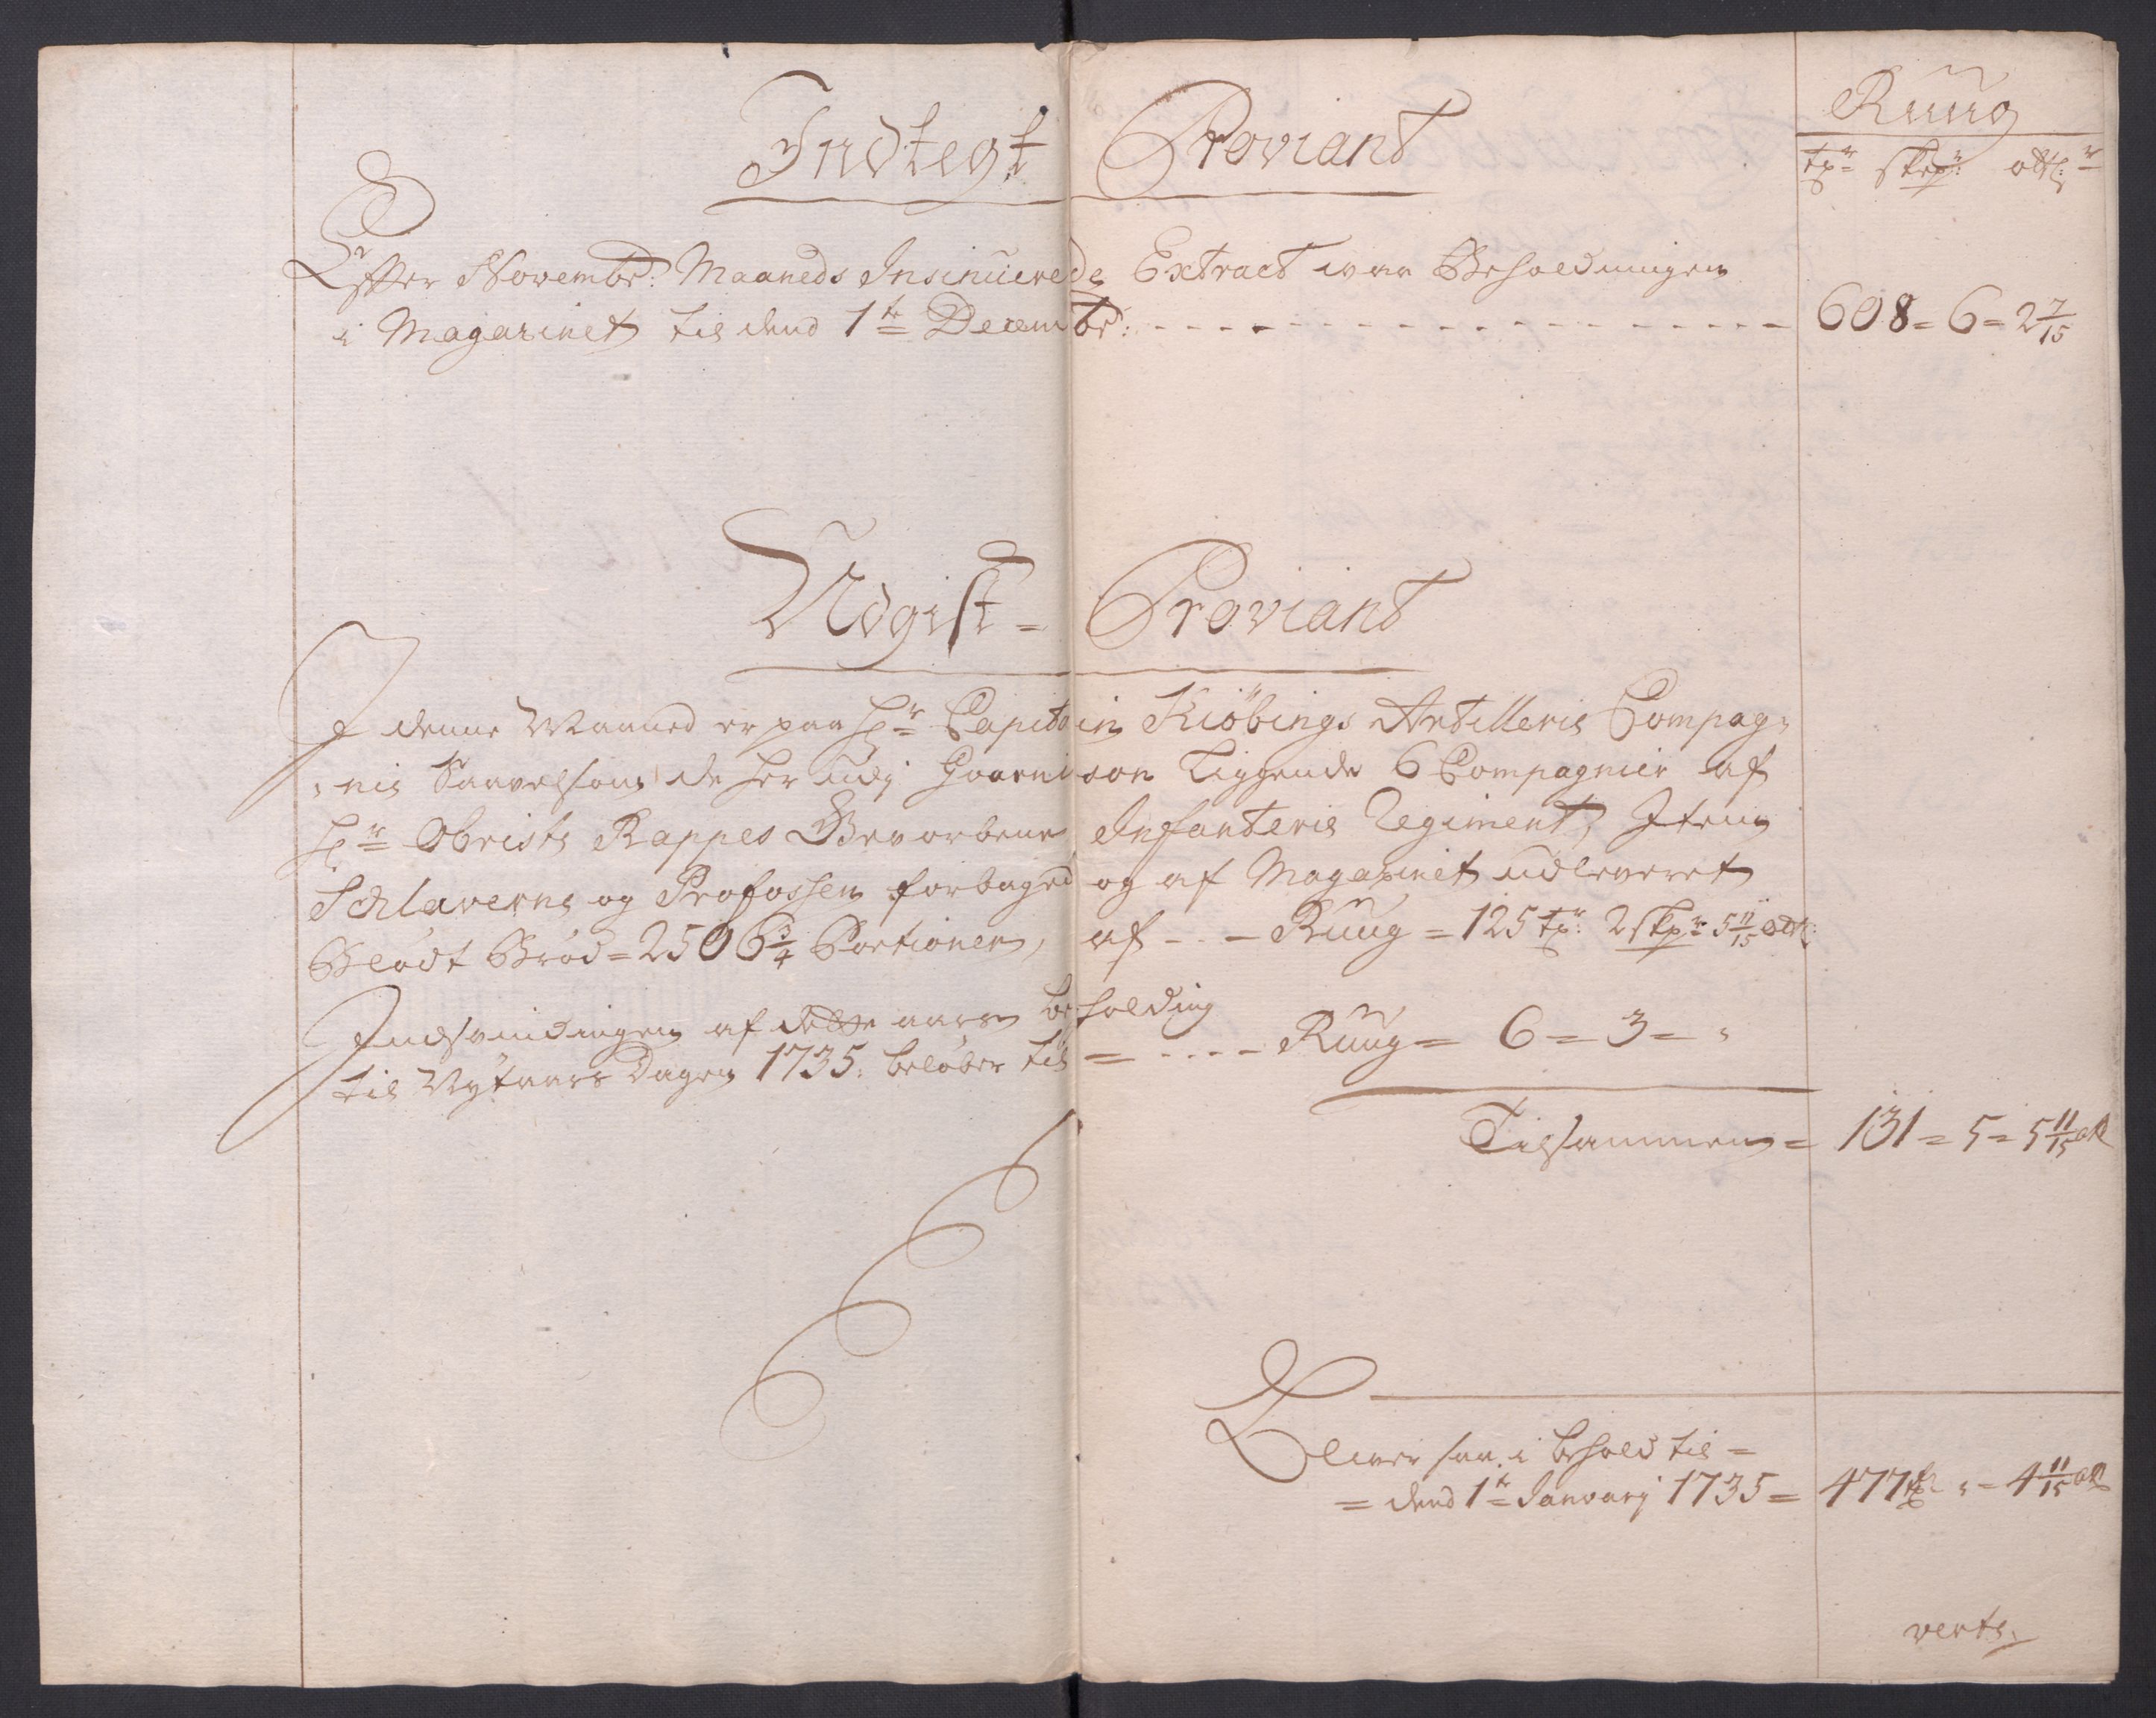 Indtegt Proviant
Ruug
tr: skp: ottl:
Efter Novembr: Maaneds Insinuerede Extract war Beholdningen
i Magazinet til dend 1te Decembr: - - - 608 = 6 = 2 7/15
Udgift = Proviant
I denne Maaned er paa Hr Capitain Kiöbings Artillerie Compag=
=nie Saavelsom de her udj Guarnison Liggende 6 Compagnier af
Hr Obriste Rappes Gevorbene Infanterie Regiment, Item
Schlaverne og Profossen forbaged og af Magazinet udleveret
Blödt Bröd = 2506 3/4 Portioner, af - - - Ruug = 125 tr: 2 skpr 5 11/15 ottl:
Indsvindingen af dette aars beholding
til Nytaars Dagen 1735: beløber til = - - - - Ruug = 6 = 3 = "
Tilsammen = 131 = 5 = 5 11/15 otl
Bliver saa i behold til =
= dend 1te Januarj 1735 = 477 tr " = 4 11/15 otl
verte.